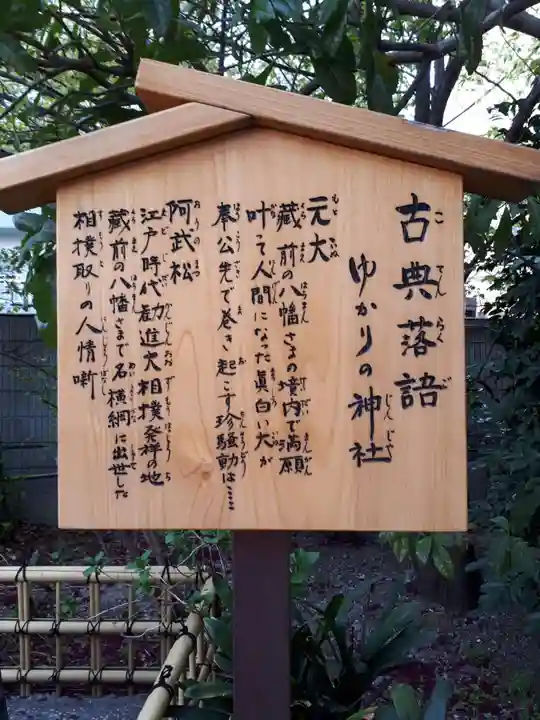 古典落語
ゆかりの神社
元犬
蔵前の八幡さまの境内で満願
叶って人間になった真白い犬が
奉公先で巻き起こす珍騒動はここ
阿武松
江戸時代勧進大相撲発祥の地
蔵前の八幡さまで名横綱に出世した
相撲取りの人情噺